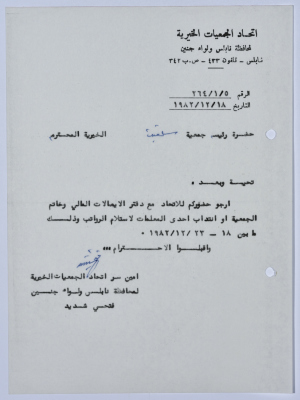 اتحاد الجمعيات الخيرية
لمحافظة نابلس ولواء جنين
نابلس - تلفون ٤٣٣ - ص.ب ٣٤٢
الرقم ٢٦٤/١/٥
التاريخ ١٩٨٢/١٢/١٨
حضرة رئيس جمعية الخيرية المحترم
تحية وبعد ،
ارجو حضوركم للاتحاد مع دفتر الايصالات المالي وخاتم
الجمعية او انتداب احدى المعلمات لاستلام الرواتب وذلك
ما بين ١٨ - ٢٣ /١٩٨٢/١٢ ٠
واقبلوا الاحترام ،،،
امين سر اتحاد الجمعيات الخيرية
لمحافظة نابلس ولواء جنين
فتحي شديد